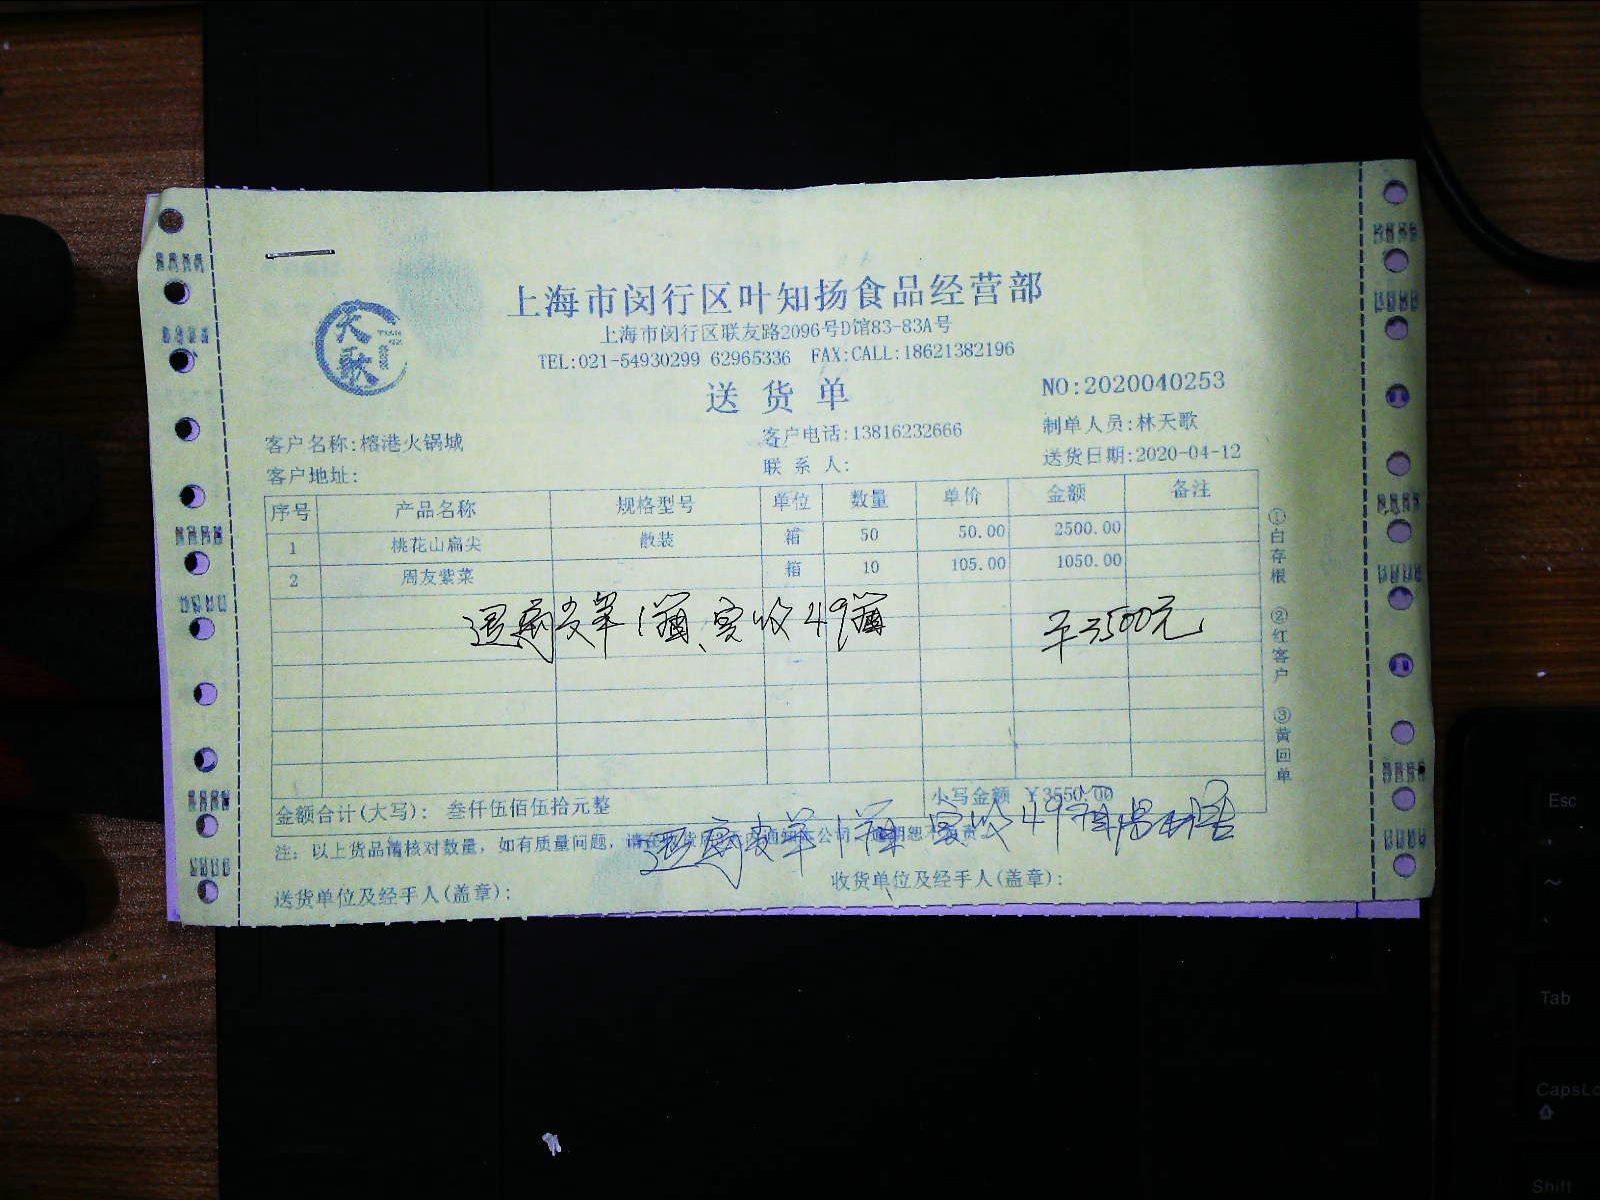 天歌
上海市闵行区叶知扬食品经营部
上海市闵行区联友路2096号D馆83-83A号
TEL:021-54930299 62965336 FAX:CALL:18621382196
送货单
NO:2020040253
客户名称:榕港火锅城 客户电话:13816232666 制单人员:林天歌
客户地址: 联系人: 送货日期:2020-04-12
序号 产品名称 规格型号 单位 数量 单价 金额 备注
1 桃花山扁尖 散装 箱 50 50.00 2500.00
2 周友紫菜 箱 10 105.00 1050.00
退 1箱、实收49箱 3500元
金额合计(大写): 叁仟伍佰伍拾元整 小写金额 ¥3550.00
注: 以上货品请核对数量, 如有质量问题, 请在 公司
退 1箱 实收49箱
送货单位及经手人(盖章): 收货单位及经手人(盖章):
①白存根 ②红客户 ③黄回单
Esc
~
Tab
CapsLo
Shift